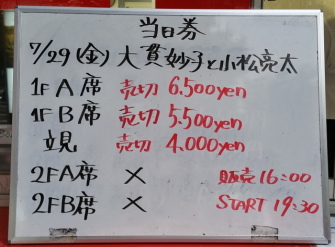 当日券
7/29(金) 大貫妙子と小松亮太
1F A席 売切 6.500yen
1F B席 売切 5.500yen
立見 売切 4.000yen
2F A席 × 販売 16:00
2F B席 × START 19:30